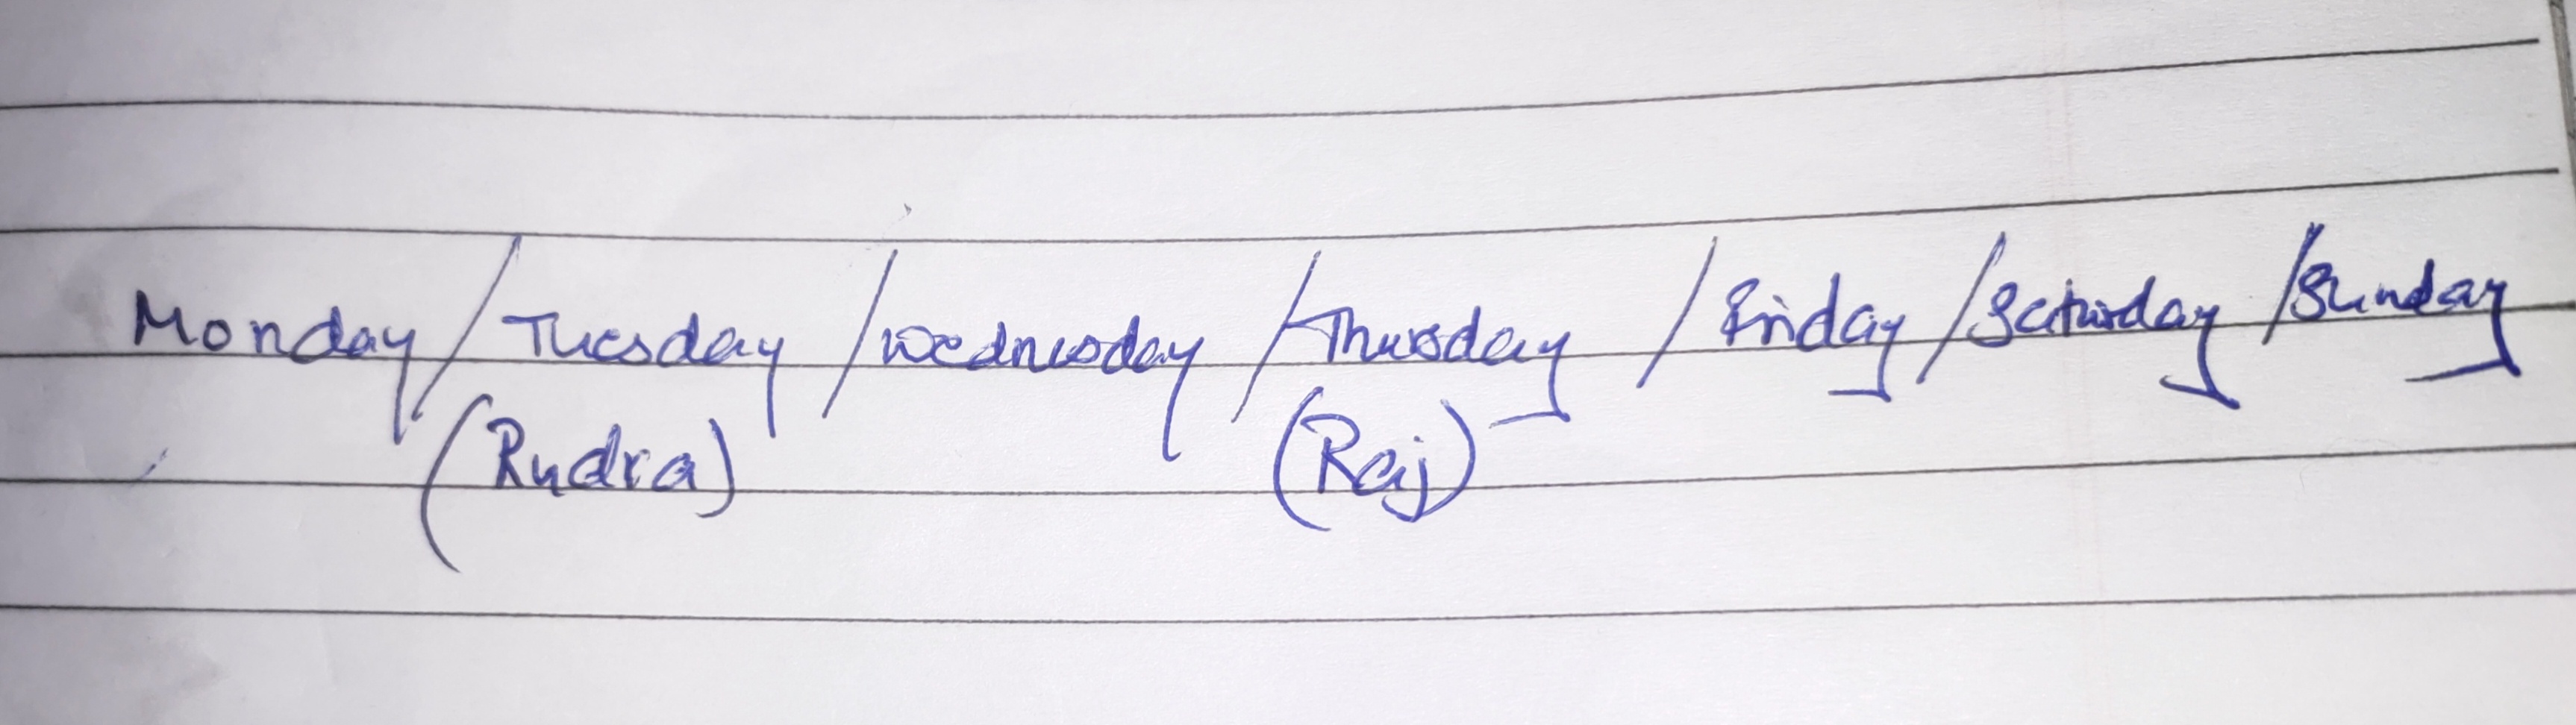 Monday / Tuesday / Wednesday / Thursday / Friday / Saturday / Sunday
(Rudra) (Raj)